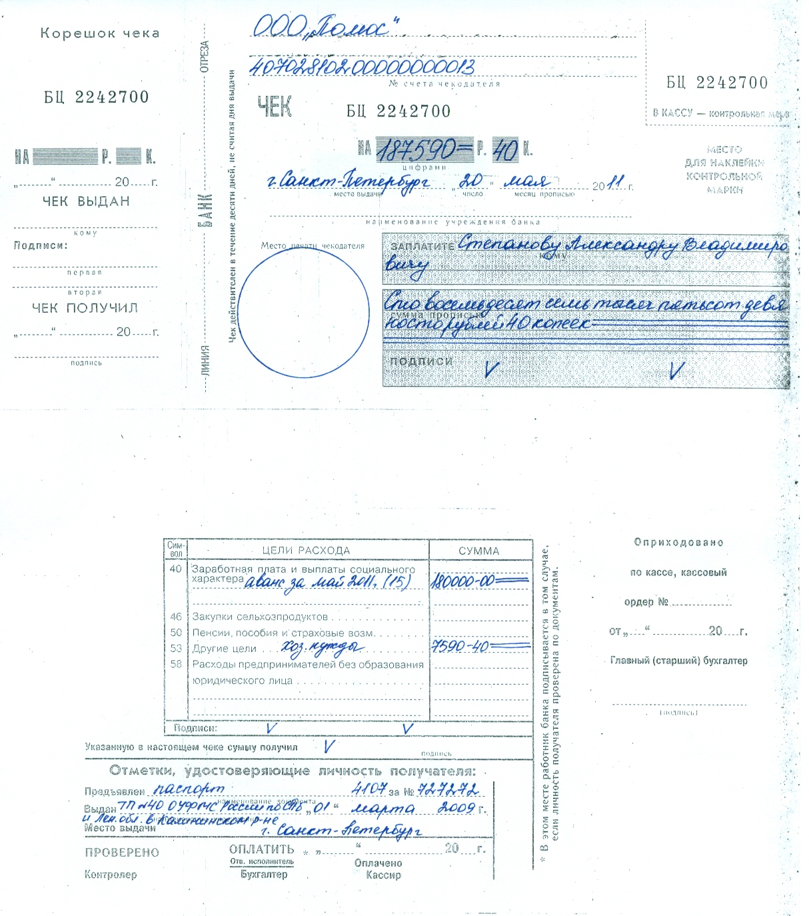 Корешок чека
БЦ 2242700
НА Р. К.
„......“ 20 г.
ЧЕК ВЫДАН
кому
Подписи:
первая
вторая
ЧЕК ПОЛУЧИЛ
„......“ 20 г.
подпись
ЛИНИЯ БАНК ОТРЕЗА
Чек действителен в течение десяти дней, не считая дня выдачи
ООО „Полюс“
40702810200000000013
№ счета чекодателя
ЧЕК БЦ 2242700
НА 187590= Р. 40 К.
цифрами
г. Санкт-Петербург „20“ мая 2011 г.
место выдачи число месяц прописью
наименование учреждения банка
БЦ 2242700
В КАССУ — контрольная марка
МЕСТО
ДЛЯ НАКЛЕЙКИ
КОНТРОЛЬНОЙ
МАРКИ
Место печати чекодателя
ЗАПЛАТИТЕ Степанову Александру Владимиро
кому
вичу
Сто восемьдесят семь тысяч пятьсот девя
сумма прописью
носто рублей 40 копеек
ПОДПИСИ V V
Сим-вол ЦЕЛИ РАСХОДА СУММА
40 Заработная плата и выплаты социального
характера аванс за май 2011. (15) 180000-00
46 Закупки сельхозпродуктов
50 Пенсии, пособия и страховые возм.
53 Другие цели хоз. нужды 7590-40
58 Расходы предпринимателей без образования
юридического лица
Подписи: V V
Указанную в настоящем чеке сумму получил V
подпись
Отметки, удостоверяющие личность получателя:
Предъявлен паспорт 4107 за № 727272
наименование документа
Выдан ТП №40 ОУФМС России по СПб „01“ марта 2009 г.
и Лен. обл. в Калининском р-не
Место выдачи г. Санкт-Петербург
ПРОВЕРЕНО ОПЛАТИТЬ * „ “ 20 г.
Отв. исполнитель Оплачено
Контролер Бухгалтер Кассир
* В этом месте работник банка подписывается в том случае,
если личность получателя проверена по документам.
Оприходовано
по кассе, кассовый
ордер №
от „....“ 20 г.
Главный (старший) бухгалтер
(подпись)